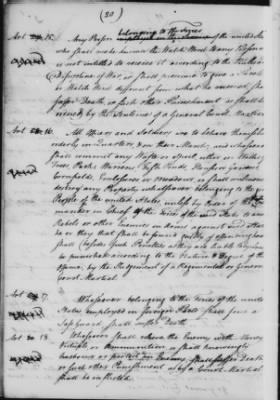 (20)
belonging to the Forces
Art. 15. Any Person of the united States
who shall make known the Watch Word to any Person
not intitled to receive it according to the Rules &
Discipline of War, or shall presume to give a Parole
or Watch Word different from what he received, shall
suffer Death, or such other Punishment as shall be
ordered by the Sentence of a General Court Martial
Art. 16. All Officers and Soldiers are to behave themselves
orderly in Quarters, & on their March, and whosoever
shall commit any Waste or Spoil, either in Walks of
Trees, Parks, Warrens, Fish Ponds, Houses or Gardens,
Cornfields, Enclosures, or Meadows, or shall maliciously
destroy any Property whatsoever belonging to the good
People of the united States, unless by Order of the Com-
mander in Chief of the Forces of the said States to annoy
Rebels or other Enemies in Arms against said States
he or they that shall be found guilty of offending herein
shall (besides such Penalties as they are liable to by Law)
be punished according to the Nature & Degree of the
Offence, by the Judgement of a Regimental or General
Court Martial.
Art. 17. Whosoever belonging to the Forces of the united
States employed in foreign Parts shall force a
Safe Guard shall suffer Death
Art. 18. Whosoever shall relieve the Enemy with Money
Victuals, or Ammunition, or shall knowingly
harbour or protect an Enemy, shall suffer Death
or such other Punishment as by a Court Martial
shall be inflicted